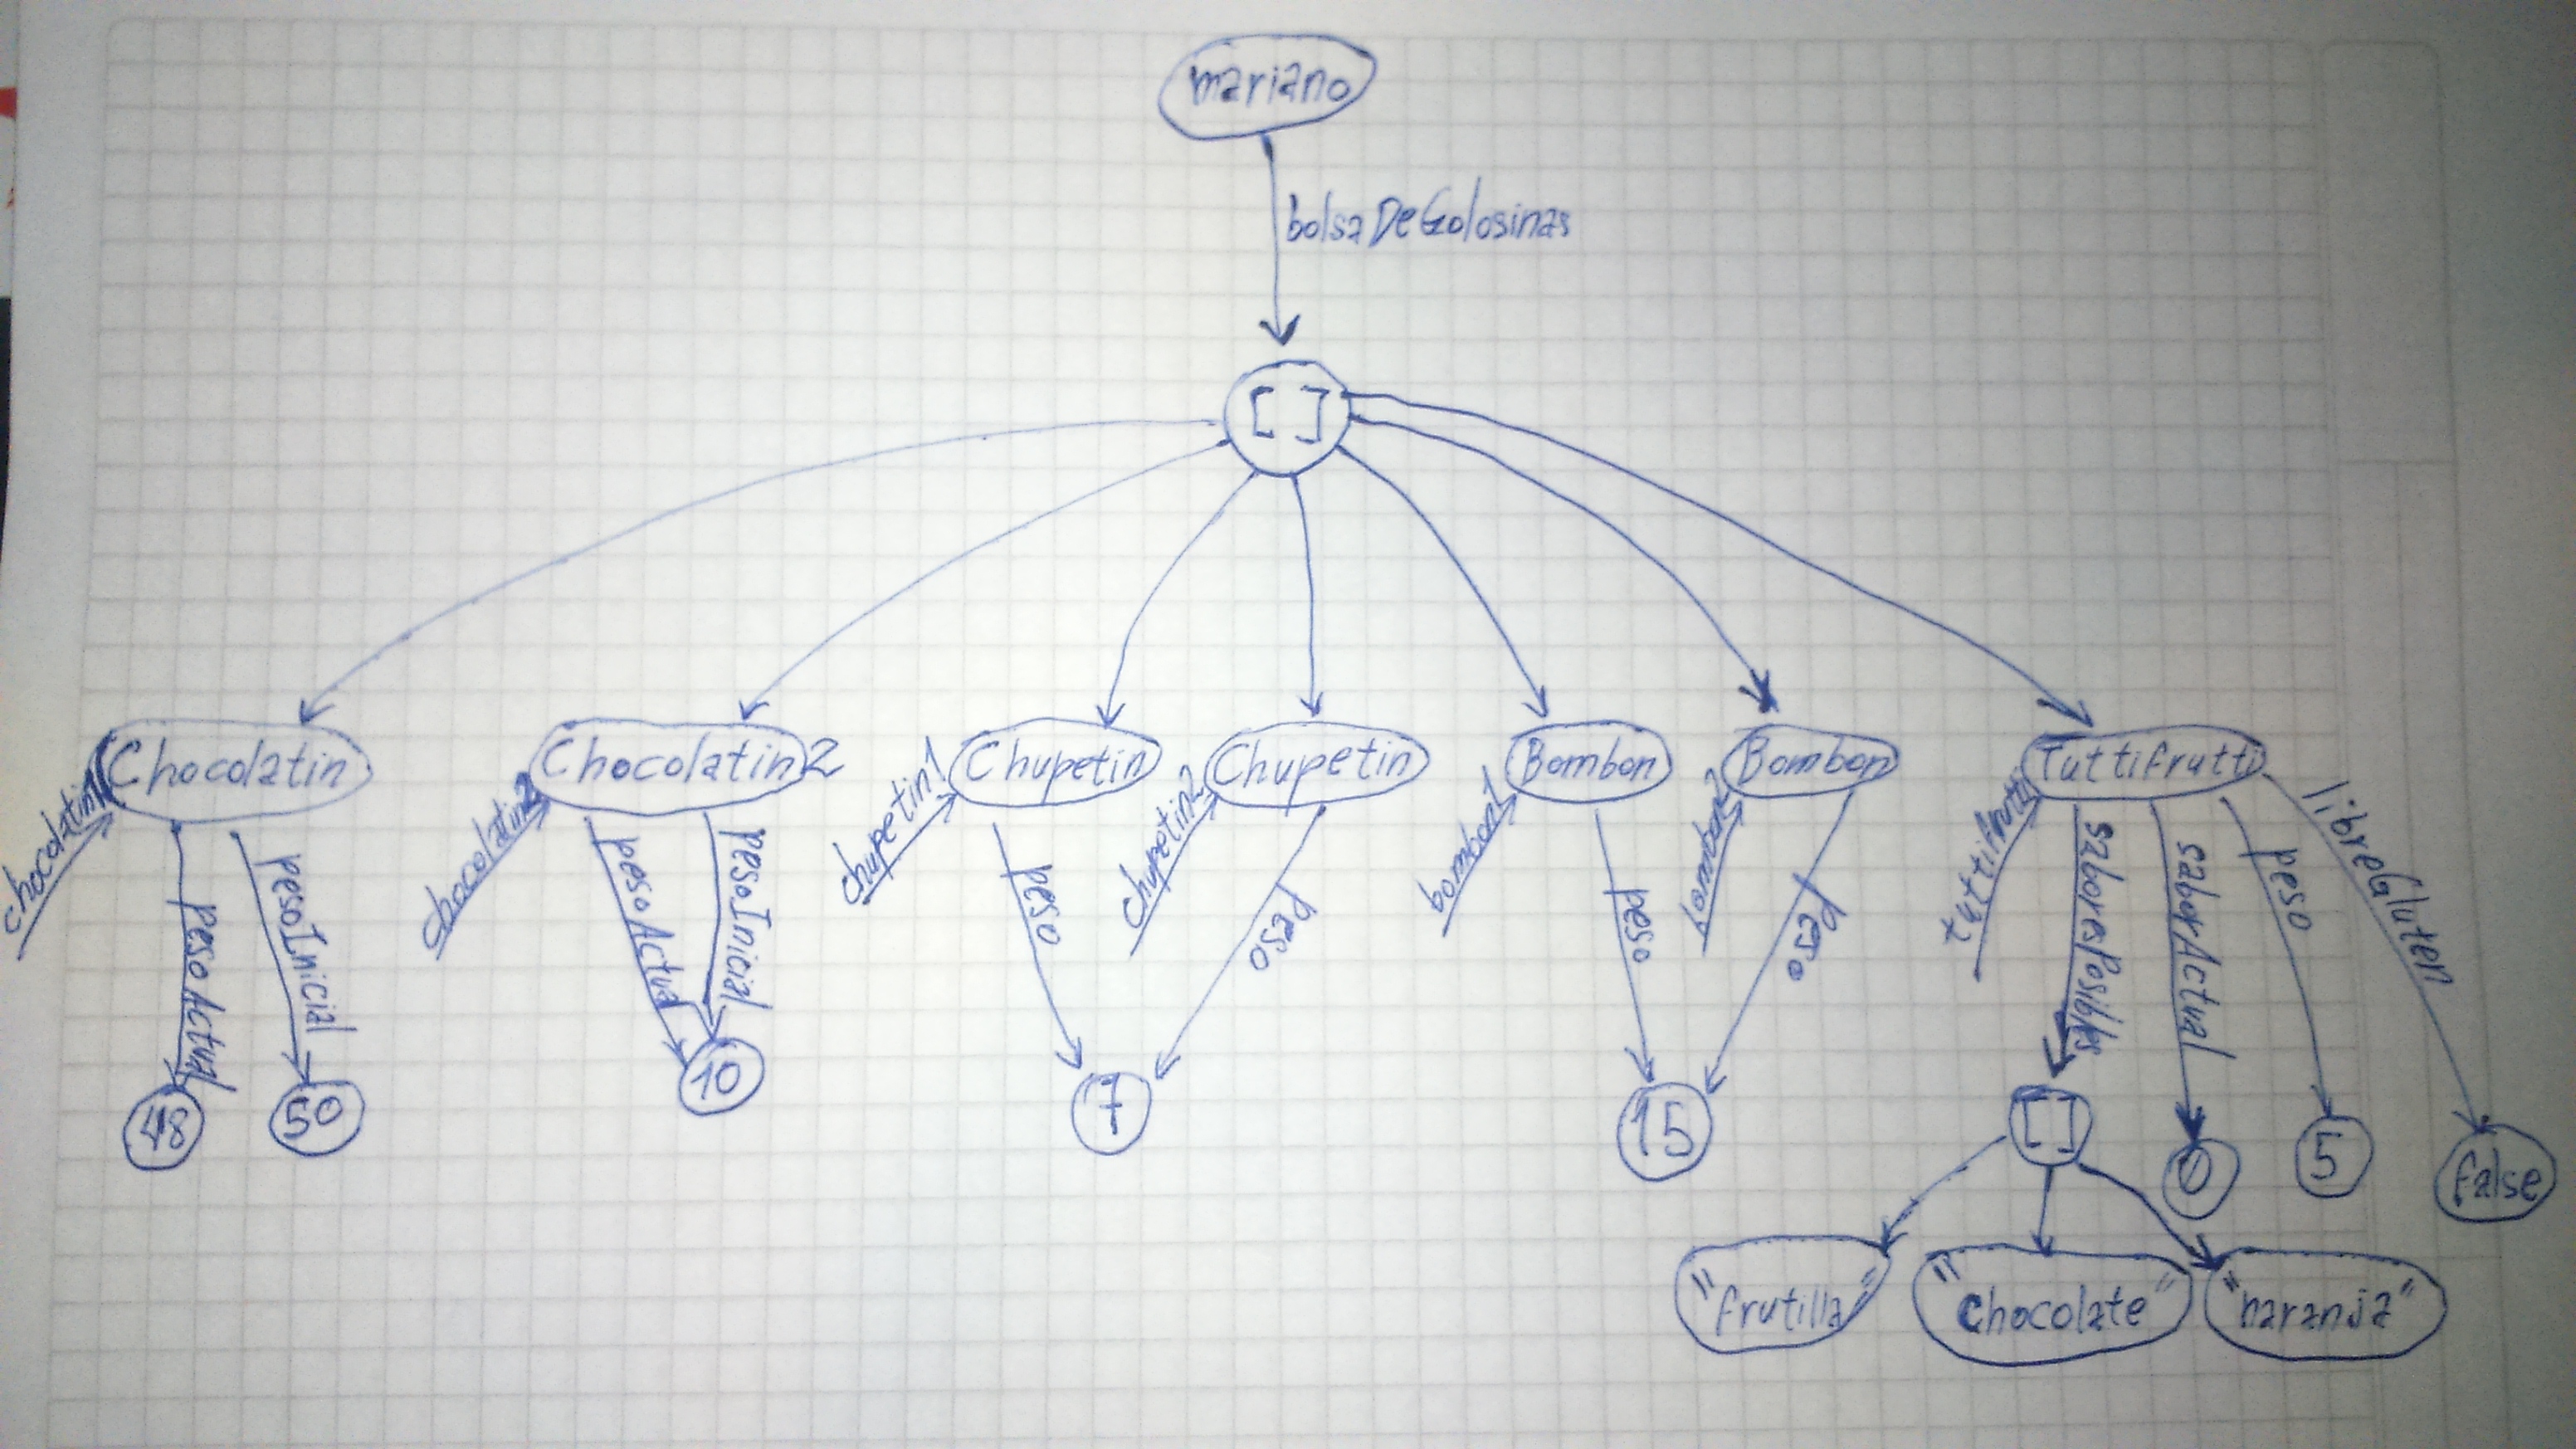 mariano
bolsaDeGolosinas
[ ]
chocolatin1
Chocolatin
pesoActual
48
pesoInicial
50
chocolatin2
Chocolatin2
pesoActual
pesoInicial
10
chupetin1
Chupetin
peso
7
chupetin2
Chupetin
peso
bombon1
Bombon
peso
15
bombon2
Bombon
peso
tuttifrutti
Tuttifrutti
saboresPosibles
[ ]
"frutilla"
"chocolate"
"naranja"
saborActual
0
peso
5
libreGluten
false